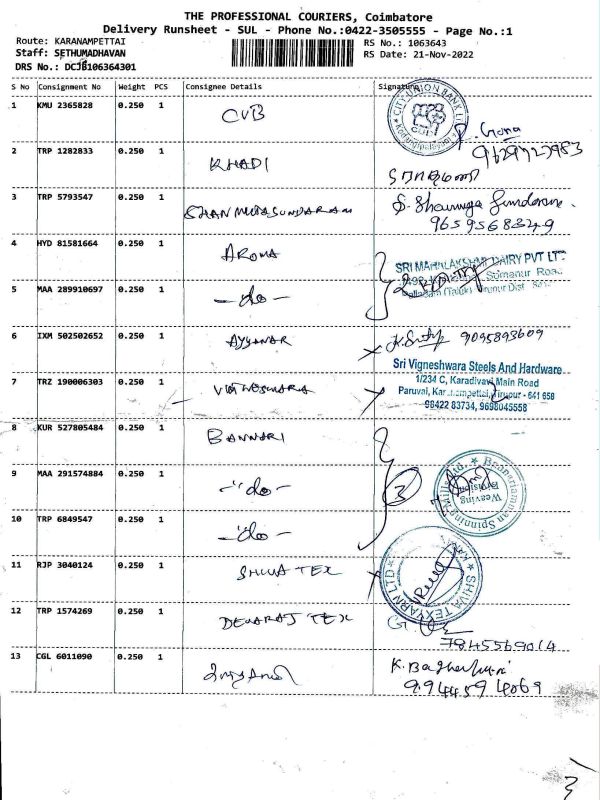 THE PROFESSIONAL COURIERS, Coimbatore
Delivery Runsheet - SUL - Phone No.:0422-3505555 - Page No.:1
Route: KARANAMPETTAI
RS No.: 1063643
Staff: SETHUMADHAVAN
RS Date: 21-Nov-2022
DRS No.: DCJB106364301
S No Consignment No Weight PCS Consignee Details Signature
1 KMU 2365828 0.250 1 CUB
CITY UNION BANK LTD
9629727983
2 TRP 1282833 0.250 1 KHADI
3 TRP 5793547 0.250 1 SHANMUGASUNDARAM
9659568349
4 HYD 81581664 0.250 1 AROMA
SRI MAHALAKSHMI DAIRY PVT LTD
Somanur Road
5 MAA 289910697 0.250 1 -do-
6 IXM 502502652 0.250 1 AYYANAR
9095893609
Sri Vigneshwara Steels And Hardware
1/234 C, Karadivavi Main Road
7 TRZ 190006303 0.250 1 VIGNESWARA
Paruvai, Karanampettai, Tirupur - 641 658
98422 83734, 9698045558
8 KUR 527805484 0.250 1 BANNARI
9 MAA 291574884 0.250 1 -"do-
3
Bannariamman Spinning Mills Ltd.
Weaving Division
10 TRP 6849547 0.250 1 -"do-
11 RJP 3040124 0.250 1 SHIVA TEX
SHIVA TEXYARN LTD
12 TRP 1574269 0.250 1 DEVARAJ TEX
7845569014
13 CGL 6011090 0.250 1
9944594069
3